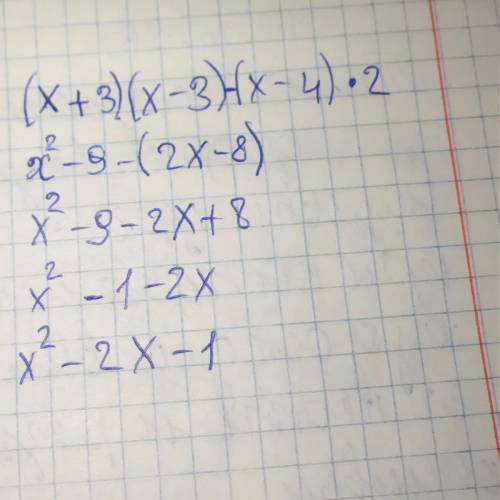 (x+3)(x-3)-(x-4)•2
x²-9-(2x-8)
x²-9-2x+8
x²-1-2x
x²-2x-1